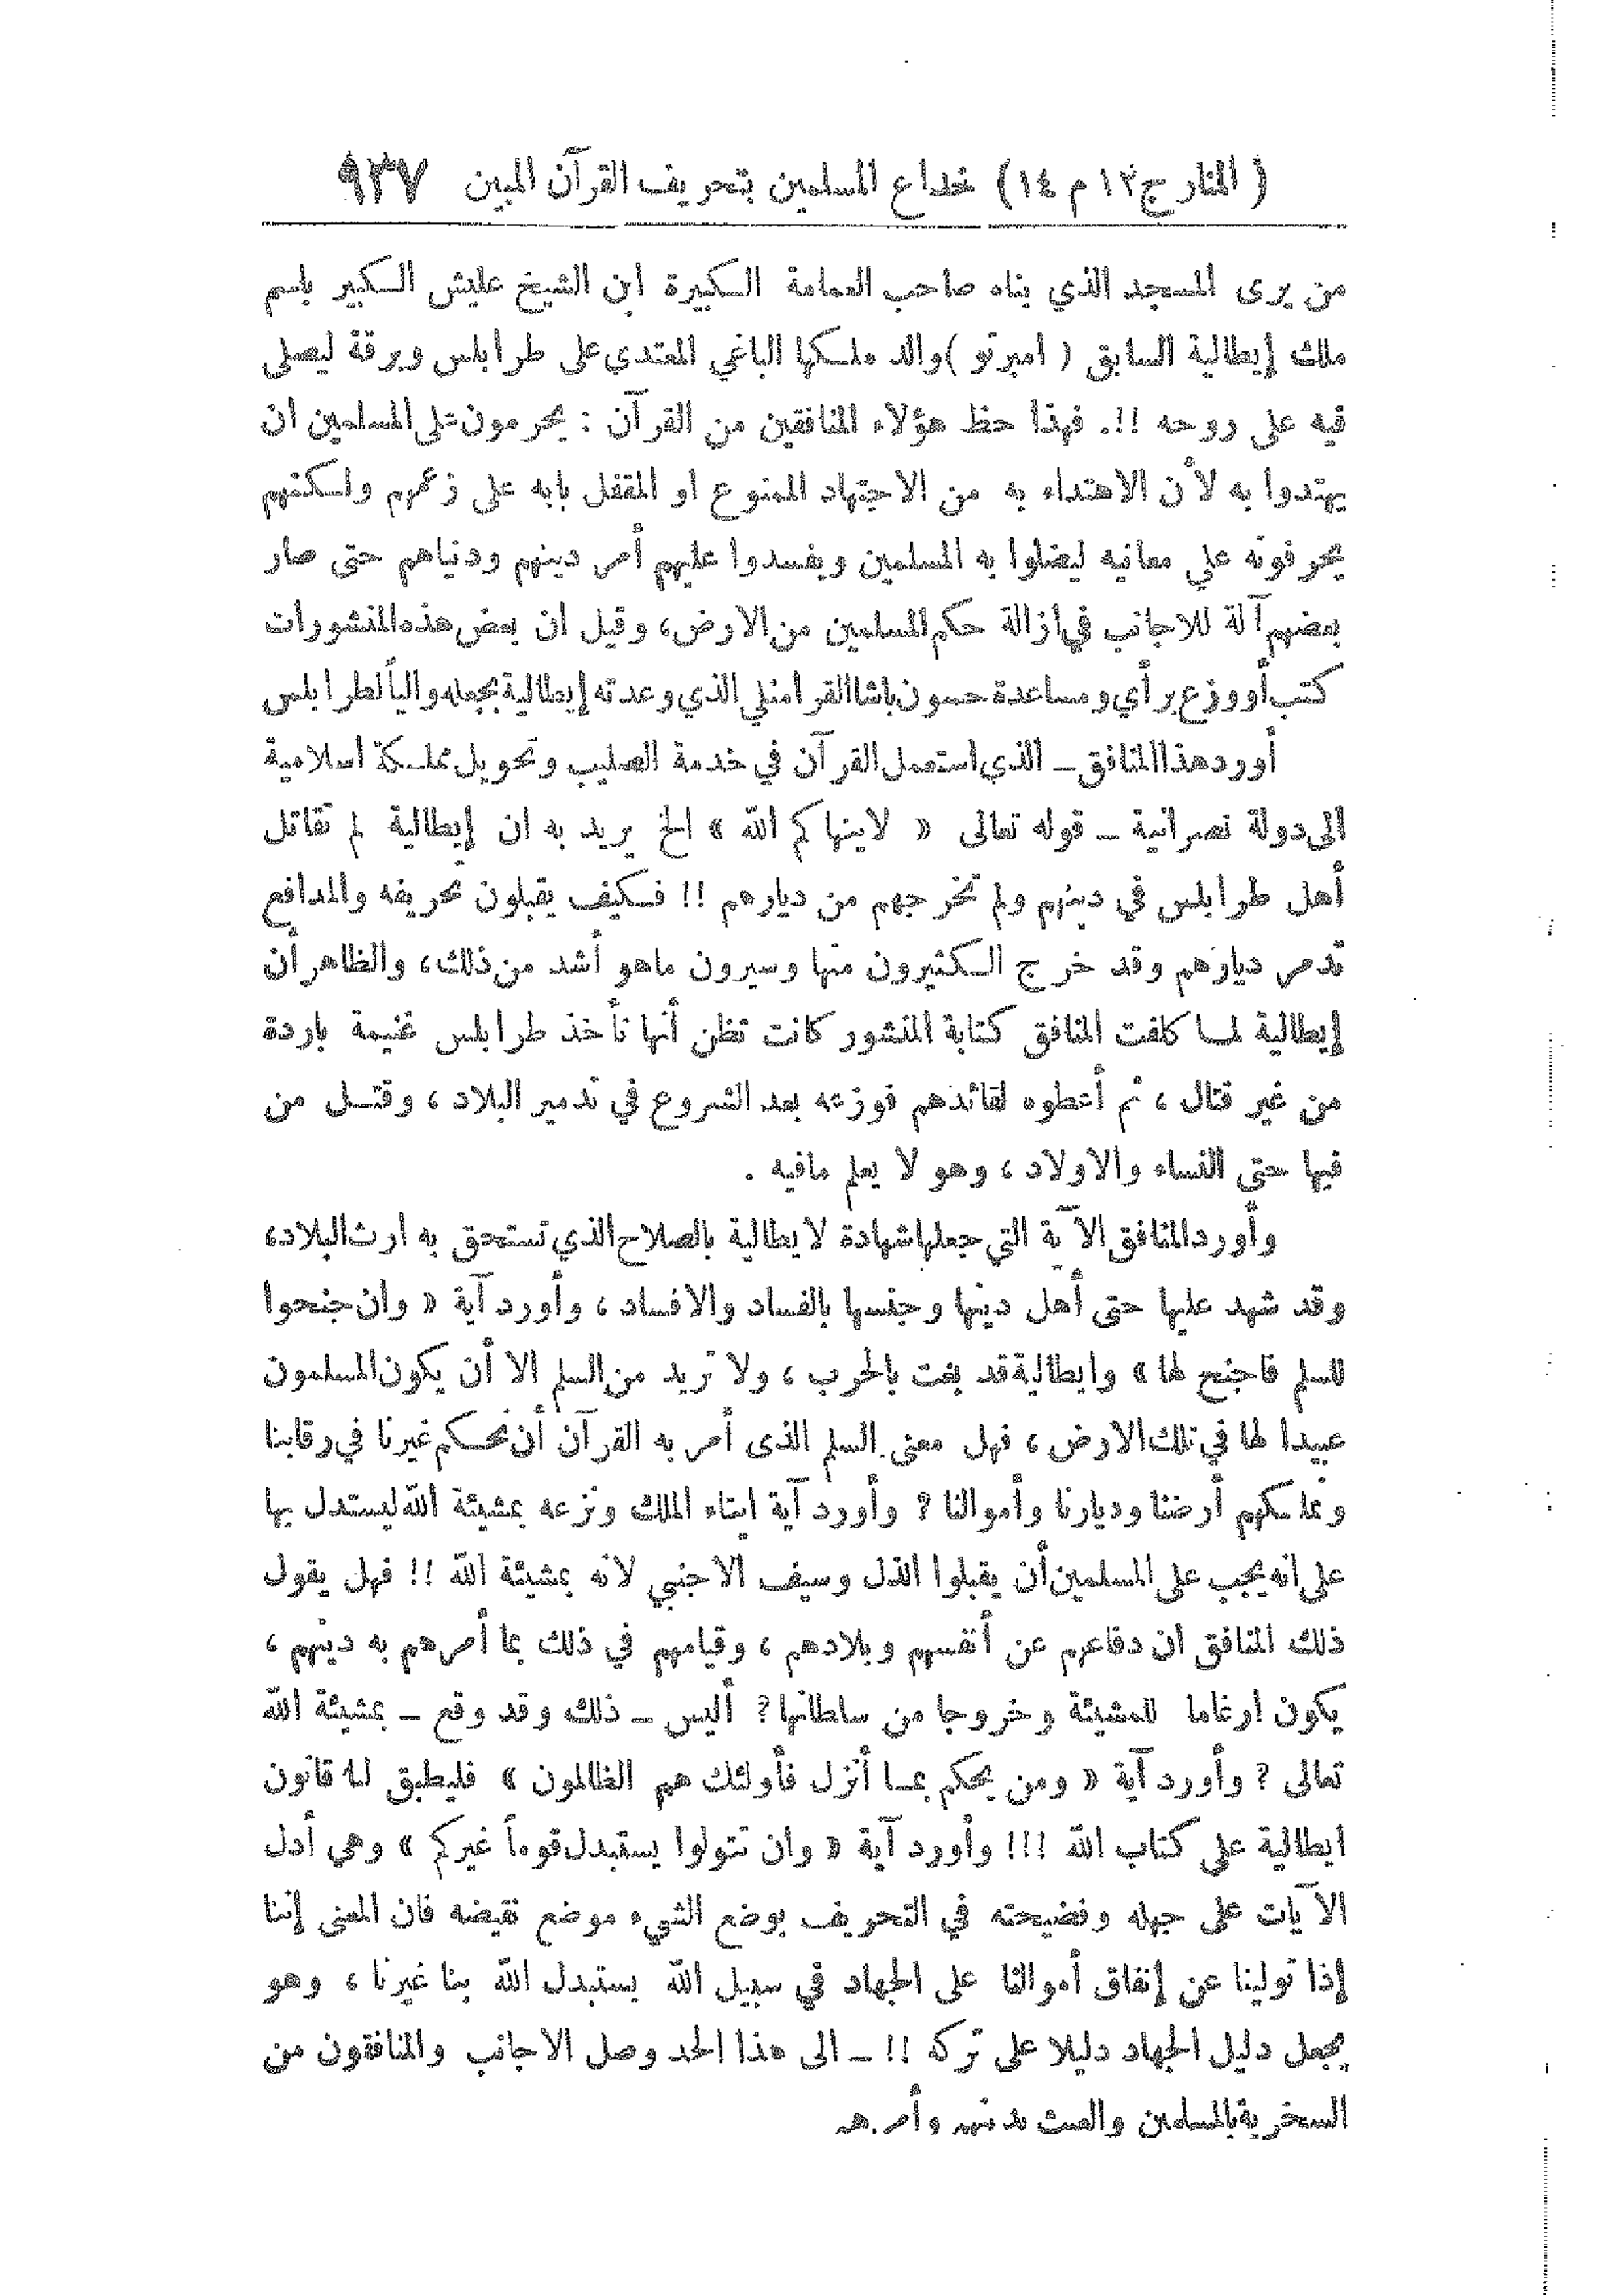 ( المنار ج١٢ م ١٤ ) خداع المسلمين بتحريف القرآن المبين ٩٣٧
من يرى المسجد الذي بناه صاحب العمامة الكبيرة ابن الشيخ عليش الكبير باسم
ملك إيطالية السابق ( امبرتو ) والد ملكها الباغي المعتدي على طرابلس وبرقة ليصلى
فيه على روحه !!. فهذا حظ هؤلاء المنافقين من القرآن : يحرمون على المسلمين ان
يهتدوا به لأن الاهتداء به من الاجتهاد الممنوع او المقفل بابه على زعمهم ولكنهم
يحرفونه على معانيه ليضلوا به المسلمين ويفسدوا عليهم أمر دينهم ودنياهم حتى صار
بعضهم آلة للاجانب في ازالة حكم المسلمين من الارض، وقيل ان بعض هذه المنشورات
كتب أو وزع برأي ومساعدة حسون باشا القرامنلي الذي وعدته إيطالية بجعله والياً لطرابلس
أورد هذا المنافق ــ الذي استعمل القرآن في خدمة الصليب وتحويل مملكة اسلامية
الى دولة نصرانية ــ قوله تعالى « لا ينهاكم الله » الخ يريد به ان إيطالية لم تقاتل
أهل طرابلس في دينهم ولم تخرجهم من ديارهم !! فكيف يقبلون تحريفه والمدافع
تدمر ديارهم وقد خرج الكثيرون منها وسيرون ماهو أشد من ذلك، والظاهر أن
إيطالية لما كلفت المنافق كتابة المنشور كانت تظن أنها تأخذ طرابلس غنيمة باردة
من غير قتال ، ثم أعطوه لقائدهم فوزعه بعد الشروع في تدمير البلاد ، وقتل من
فيها حتى النساء والاولاد ، وهو لا يعلم مافيه .
وأورد المنافق الآية التي جعلها شهادة لايطالية بالصلاح الذي تستحق به ارث البلاد،
وقد شهد عليها حتى أهل دينها وجنسها بالفساد والافساد ، وأورد آية « وان جنحوا
للسلم فاجنح لها » وايطالية قد بغت بالحرب ، ولا تريد من السلم الا أن يكون المسلمون
عبيدا لها في تلك الارض ، فهل معنى السلم الذى أمر به القرآن أن نحكم غيرنا في رقابنا
ونملكهم أرضنا وديارنا وأموالنا ؟ وأورد آية ايتاء الملك ونزعه بمشيئة الله ليستدل بها
على انه يجب على المسلمين أن يقبلوا الذل وسيف الاجنبي لانه بمشيئة الله !! فهل يقول
ذلك المنافق ان دفاعهم عن أنفسهم وبلادهم ، وقيامهم في ذلك بما أمرهم به دينهم ،
يكون ارغاما للمشيئة وخروجا من سلطانها ؟ أليس ــ ذلك وقد وقع ــ بمشيئة الله
تعالى ؟ وأورد آية « ومن يحكم بما أنزل فأولئك هم الظالمون » فليطبق لنا قانون
ايطالية على كتاب الله !!! وأورد آية « وان تتولوا يستبدل قوماً غيركم » وهي أدل
الآيات على جهله وفضيحته في التحريف بوضع الشيء موضع نقيضه فان المعنى إننا
إذا تولينا عن إنفاق أموالنا على الجهاد في سبيل الله يستبدل الله بنا غيرنا ، وهو
يجعل دليل الجهاد دليلا على تركه !! ــ الى هذا الحد وصل الاجانب والمنافقون من
السخرية بالمسلمين والعبث بدينهم وأمرهم